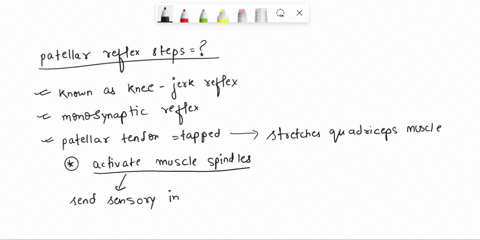 patellar reflex steps = ?
known as knee-jerk reflex
monosynaptic reflex
patellar tendon = tapped → stretches quadriceps muscle
* activate muscle spindles
send sensory in